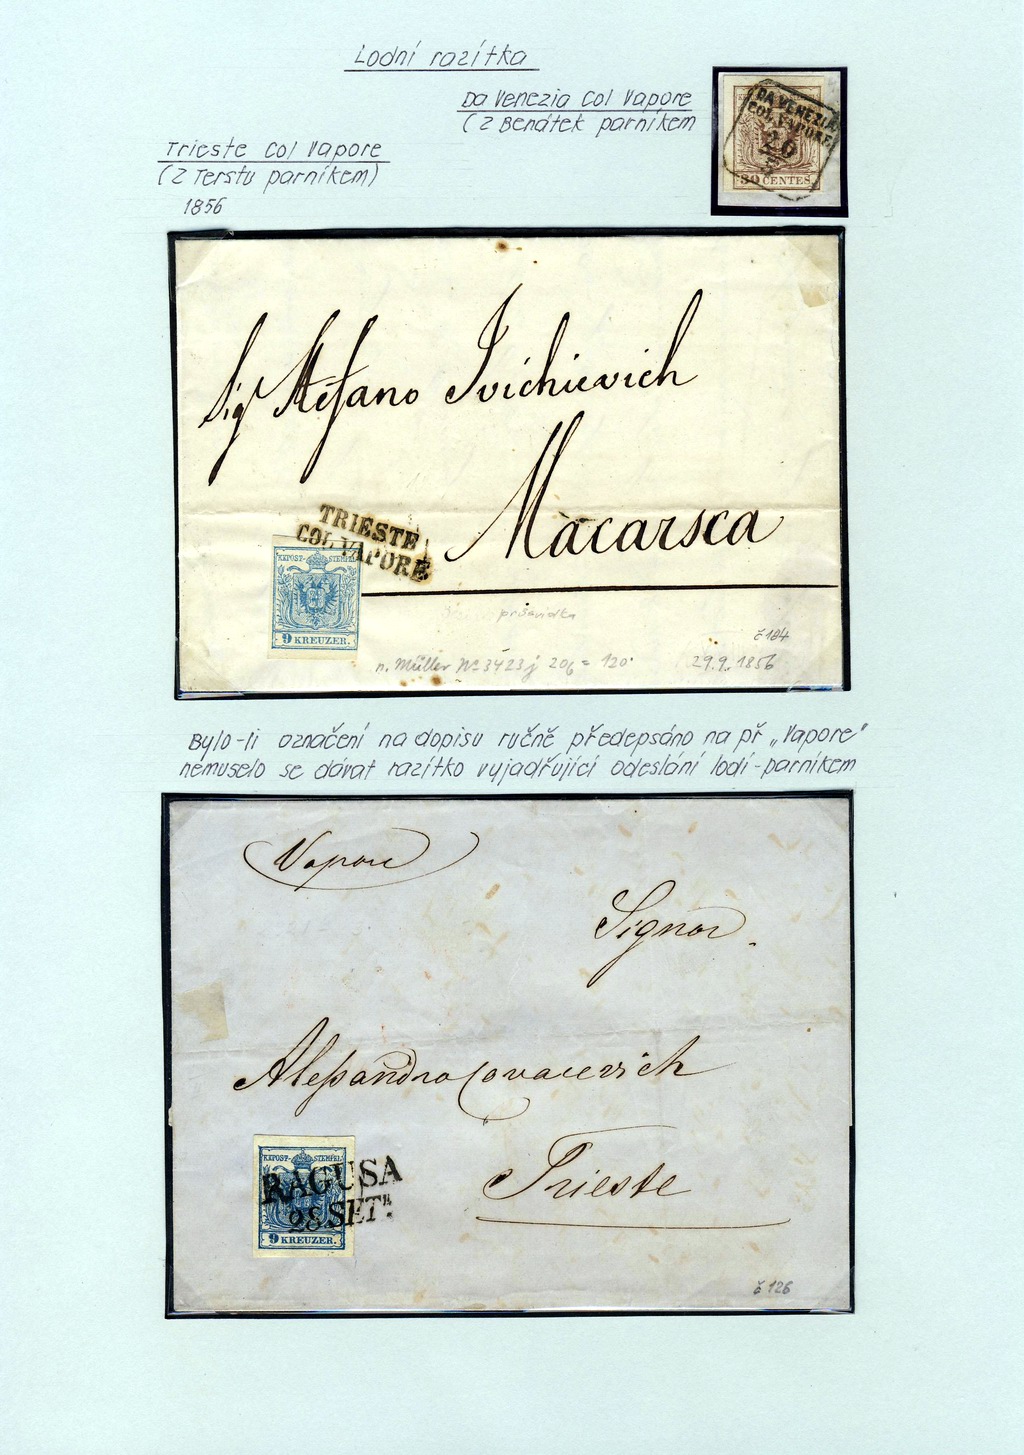 Lodní razítka
Da Venezia Col Vapore
(z Benátek parníkem
DA VENEZIA
COL VAPORE
20
30 CENTES
Trieste Col Vapore
(z Terstu parníkem)
1856
Sigr Stefano Ivichievich
Macarsca
TRIESTE
COL VAPORE
KKPOST-STEMPEL
9 KREUZER.
č 184
n. Müller No 3423j 206 = 120.
29.9.1856
Bylo-li označení na dopisu ručně předepsáno na př „Vapore"
nemuselo se dávat razítko vyjadřující odeslání lodí-parníkem
Vapore
Signor
Alessandro Covacevich
Trieste
KKPOST-STEMPEL
RAGUSA
28 SETR.
9 KREUZER.
č 126